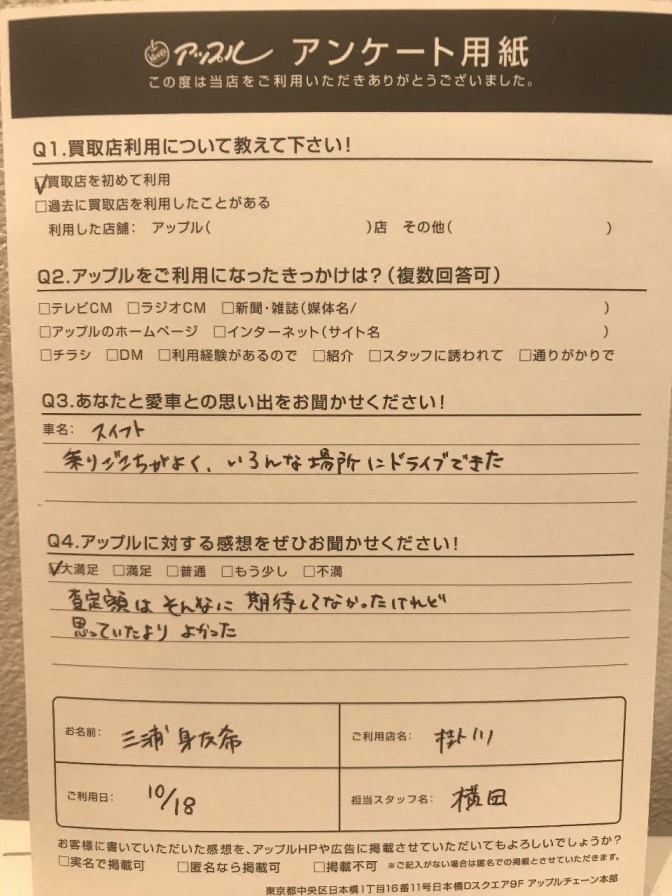 アップル アンケート用紙
この度は当店をご利用いただきありがとうございました。
Q1.買取店利用について教えて下さい!
☑買取店を初めて利用
□過去に買取店を利用したことがある
利用した店舗: アップル( )店 その他( )
Q2.アップルをご利用になったきっかけは?(複数回答可)
□テレビCM □ラジオCM □新聞・雑誌(媒体名/ )
□アップルのホームページ □インターネット(サイト名 )
□チラシ □DM □利用経験があるので □紹介 □スタッフに誘われて □通りがかりで
Q3.あなたと愛車との思い出をお聞かせください!
車名: スイフト
乗りごこちがよく、いろんな場所にドライブできた
Q4.アップルに対する感想をぜひお聞かせください!
☑大満足 □満足 □普通 □もう少し □不満
査定額はそんなに期待してなかったけれど
思っていたよりよかった
お名前: 三浦 友希
ご利用店名: 掛川
ご利用日: 10/18
担当スタッフ名: 横田
お客様に書いていただいた感想を、アップルHPや広告に掲載させていただいてもよろしいでしょうか?
□実名で掲載可 □匿名なら掲載可 □掲載不可 ※ご記入がない場合は匿名での掲載とさせていただきます。
東京都中央区日本橋1丁目16番11号日本橋Dスクエア9F アップルチェーン本部